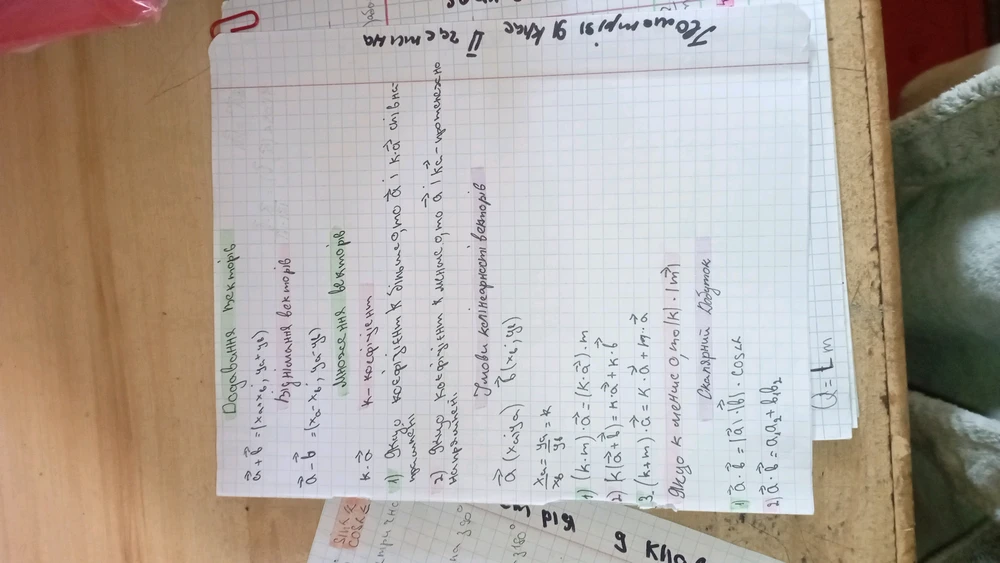 Геометрія 9 клас II частина
Додавання векторів
a⃗ + b⃗ = (xa+xb; ya+yb)
Віднімання векторів
a⃗ - b⃗ = (xa-xb; ya-yb)
Множення векторів
k·a⃗ k - коефіцієнт
1) Якщо коефіцієнт k більше 0, то a⃗ і k·a⃗ співна-
прямлені
2) Якщо коефіцієнт k менше 0, то a⃗ і ka⃗ - протилежно
напрямлені
Умови колінеарності векторів
a⃗ (xa; ya) b⃗ (xb; yb)
xa/xb = ya/yb = k
1) (k·m)·a⃗ = (k·a⃗)·m
2) k(a⃗+b⃗) = k·a⃗ + k·b⃗
3. (k+m)·a⃗ = k·a⃗ + m·a⃗
Якщо k менше 0, то |k|·|m⃗|
Скалярний добуток
1) a⃗·b⃗ = |a⃗|·|b⃗|·cosα
2) a⃗·b⃗ = a₁a₂ + b₁b₂
Q = Lm
на 390°